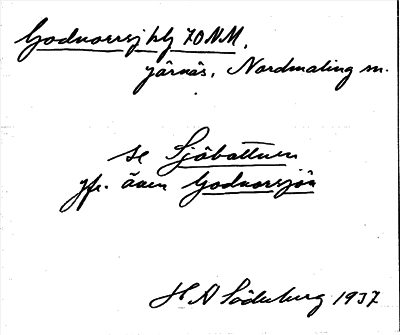 Godvorsj hlj 70NM,
Järnäs, Nordmaling sn.
se Sjöbottnen
jfr. även Godvorsjön
H A Söderberg 1937